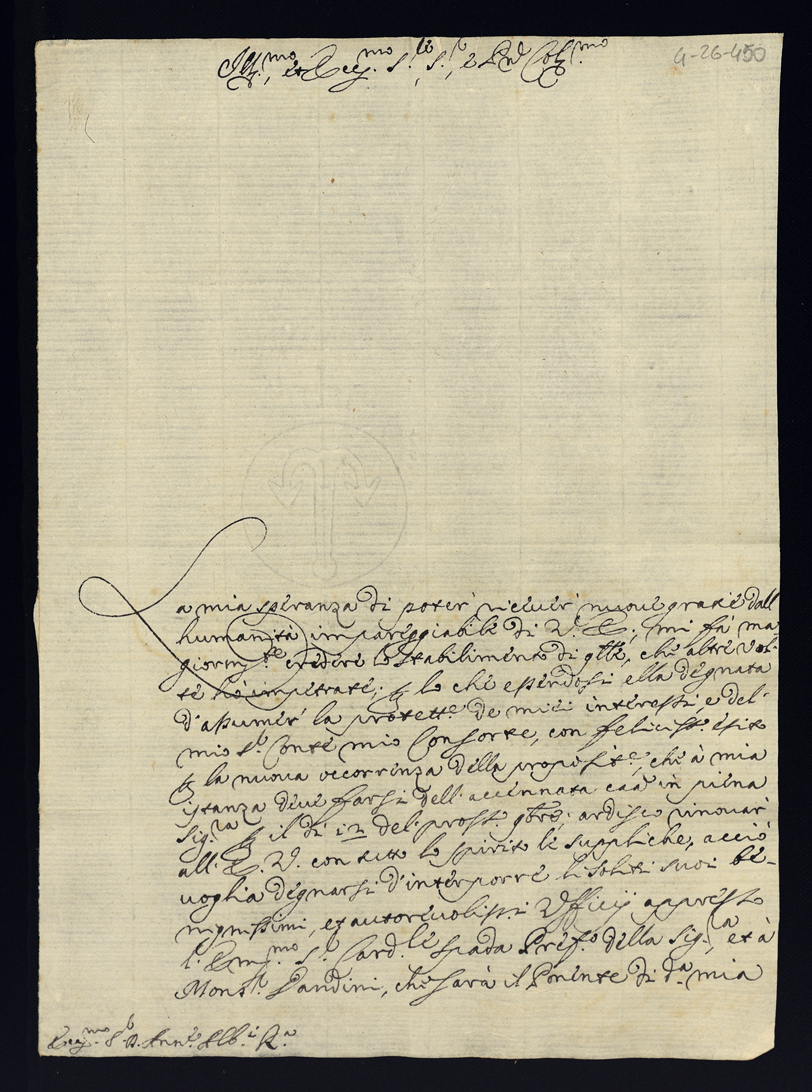 Ill.mo, et Ecc.mo S.r, S.r, e P.ron Col.mo
4-26-450
La mia speranza di poter riceuer nuoue grazie dall'
humanità impareggiabile di V. E., mi fà ma-
giorm.te credere lo stabilimento di q.lle, che altre vol-
te hò impetrate; per lo che essendosi ella degnata
d'assumer la protett.e de miei interessi, e del
mio S.r Conte mio Consorte, con feliciss.o esito
per la nuoua occorrenza della proposit.e, che à mia
istanza deue farsi dell'accennata cā in piena
Sig.ra per il dì 12 del pross.o 9bre; ardisco rinouar
all'E. V. con tutto lo spirito le suppliche, acciò
voglia degnarsi d'interporre li soliti suoi be-
nignissimi, et autoreuoliss.i Officij appresso
l'Em.mo S.r Card.le Spada Pref.o della Sig.ra, et à
Mons.r Pandini, che sarà il Ponente di d.a mia
Ecc.mo S.r D. Ann.e Alb.i R.a